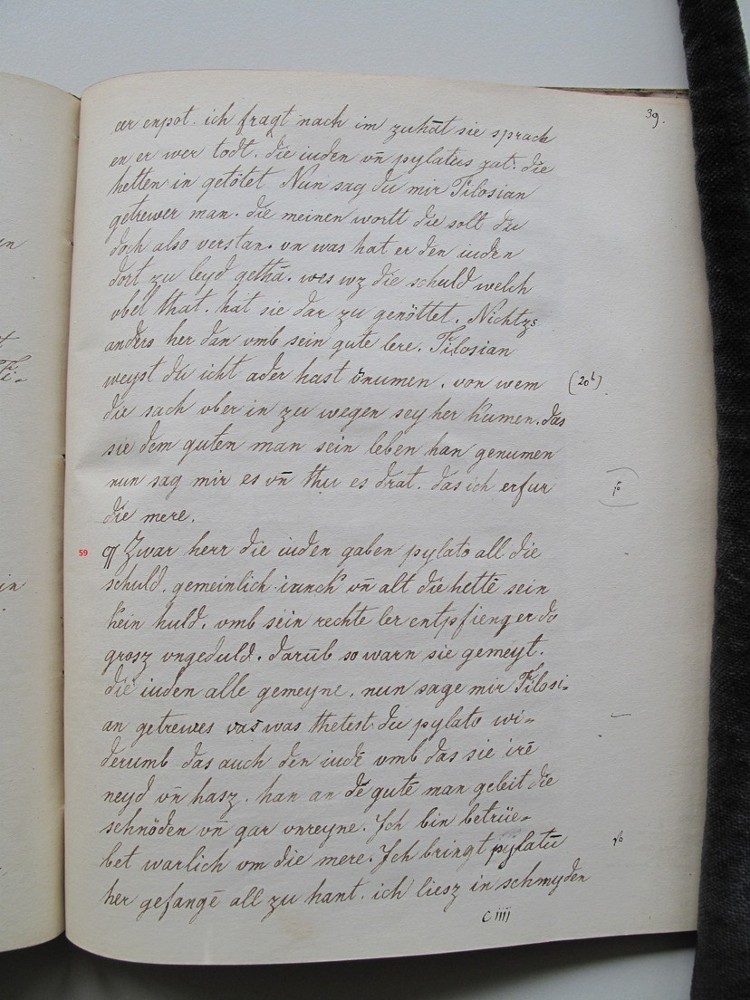 39.
er enpot. ich fragt nach im zuhāt sie sprach
en er wer todt. die iuden vn̄ pylatus rat. die
hetten in getötet Nun sag du mir Tilosian
getrewer man. die meinen wortt die solt du
doch also verstan. vn was hat er den iuden
dort zu leyd gethā. wes wz die schuld welch
vbel that. hat sie dar zu genöttet. Nichtzs
anders her dan vmb sein gute lere. Tilosian
weyst du icht ader hast v̄numen. von wem (20b)
die sach vber in zu wegen sey her kumen. das
sie dem guten man sein leben han genumen
nun sag mir es vn̄ thu es drat. das ich erfur
die mere.
59 ¶ Zwar herr die iuden gaben pylato all die
schuld. gemeinlich iunck vn̄ alt die hettē sein
kein huld. vmb sein rechte ler entpfieng er do
grosz vngeduld. darūb so warn sie gemeyt.
die iuden alle gemeyne. nun sage mir Tilosi-
an getrewes was thetest du pylato wi-
derumb das auch den iudē vmb das sie irē
neyd vn̄ hasz. han an dē gutē man geleit die
schnöden vn̄ gar vnreyne. Ich bin betrüe-
bet warlich vm die mere. Ich bringt pylatū
her gefangē all zu hant. ich liesz in schmyden
C iiii